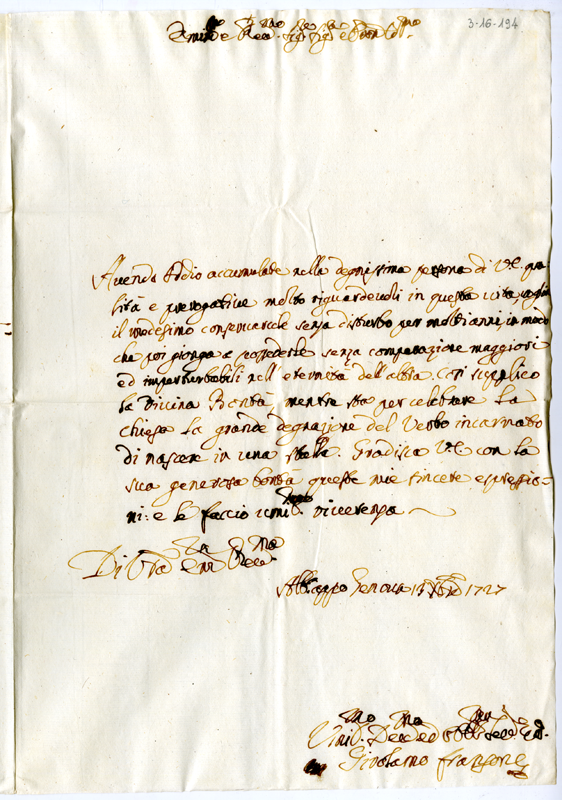 3-16-194
Em.mo e Rev.mo Sig.r Sig.r e Pron Col.mo
Avendo Iddio accumulate nella degnissima persona di V.E. qua
lità e prerogative molto riguardevoli in questa vita voglia
il medesimo conservarcele senza disturbo per molti anni, in modo
che poi gionga a possederle senza comparazione maggiori
ed imperturbabili nell'eternità dell'altra. Così supplico
la Divina Bontà, mentre sta per celebrare la
chiesa la grande degnazione del Verbo incarnato
di nascere in una stalla. Gradisca V.E. con la
sua generosa bontà queste mie sincere espressio-
ni: e le faccio umil.ma riverenza
Di V.ra Em.za Rev.ma
Genova 13 Xbre 1727
Um.mo Dev.mo ed Obbl.mo Serv.
Girolamo Franzone